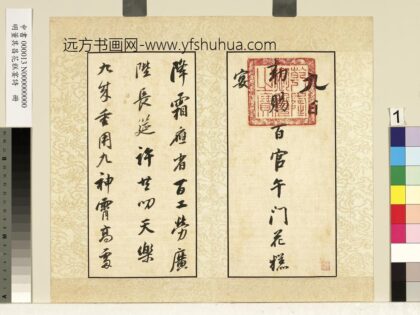 远方书画网-www.yfshuhua.com
九日
敕賜百官午门花糕
宴
降霜應省百工勞廣
陛長筵許共叨天樂
九成重用九神霄高處
中書 000013 N000000000
明董其昌花糕宴詩 冊
1